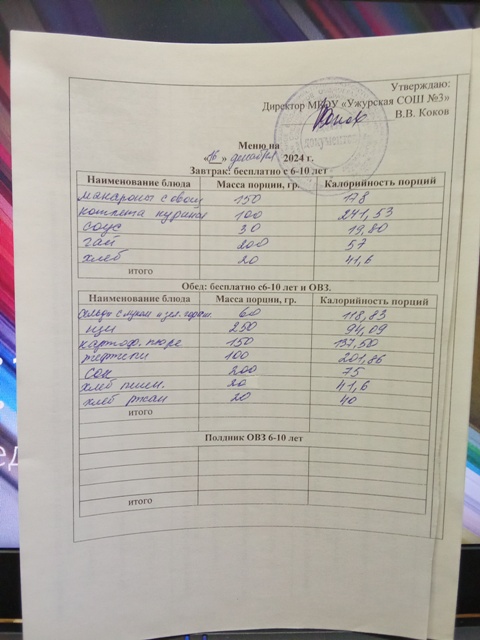 Утверждаю:
Директор МКОУ «Ужурская СОШ №3»
В.В. Коков
Меню на
«16» декабря 2024 г.
Завтрак: бесплатно с 6-10 лет
Наименование блюда Масса порции, гр. Калорийность порций
макароны с овощ 150 178
котлета куриная 100 241,53
соус 30 19,80
чай 200 57
хлеб 20 41,6
итого
Обед: бесплатно с6-10 лет и ОВЗ.
Наименование блюда Масса порции, гр. Калорийность порций
сельдь с луком и зел. горош. 60 118,83
щи 250 94,09
картоф. пюре 150 137,50
тефтели 100 201,86
сок 200 75
хлеб пшен. 20 41,6
хлеб ржан 20 40
итого
Полдник ОВЗ 6-10 лет
итого